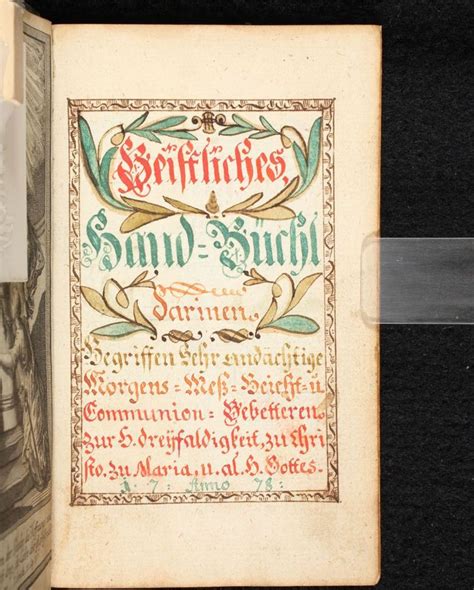 Geistliches,
Hand=Büchl
Darinen,
Begriffen Sehr andächtige
Morgens=Meß=Beicht=u
Communion=Gebetteren,
zur H. dreÿfaldigkeit, zu Chri
sto, zu Maria, u. al. H. Gottes.
1 · 7 : Anno 78 :